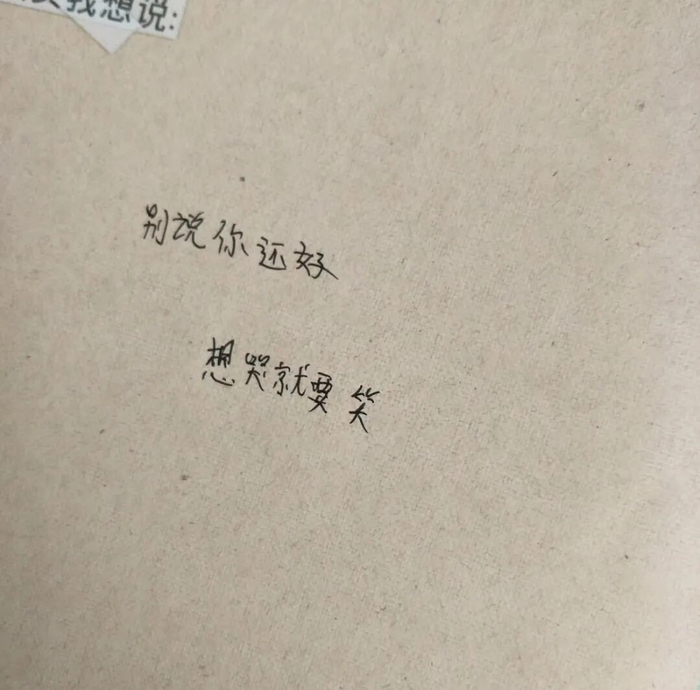 我想说:
别说你还好
想哭就要笑